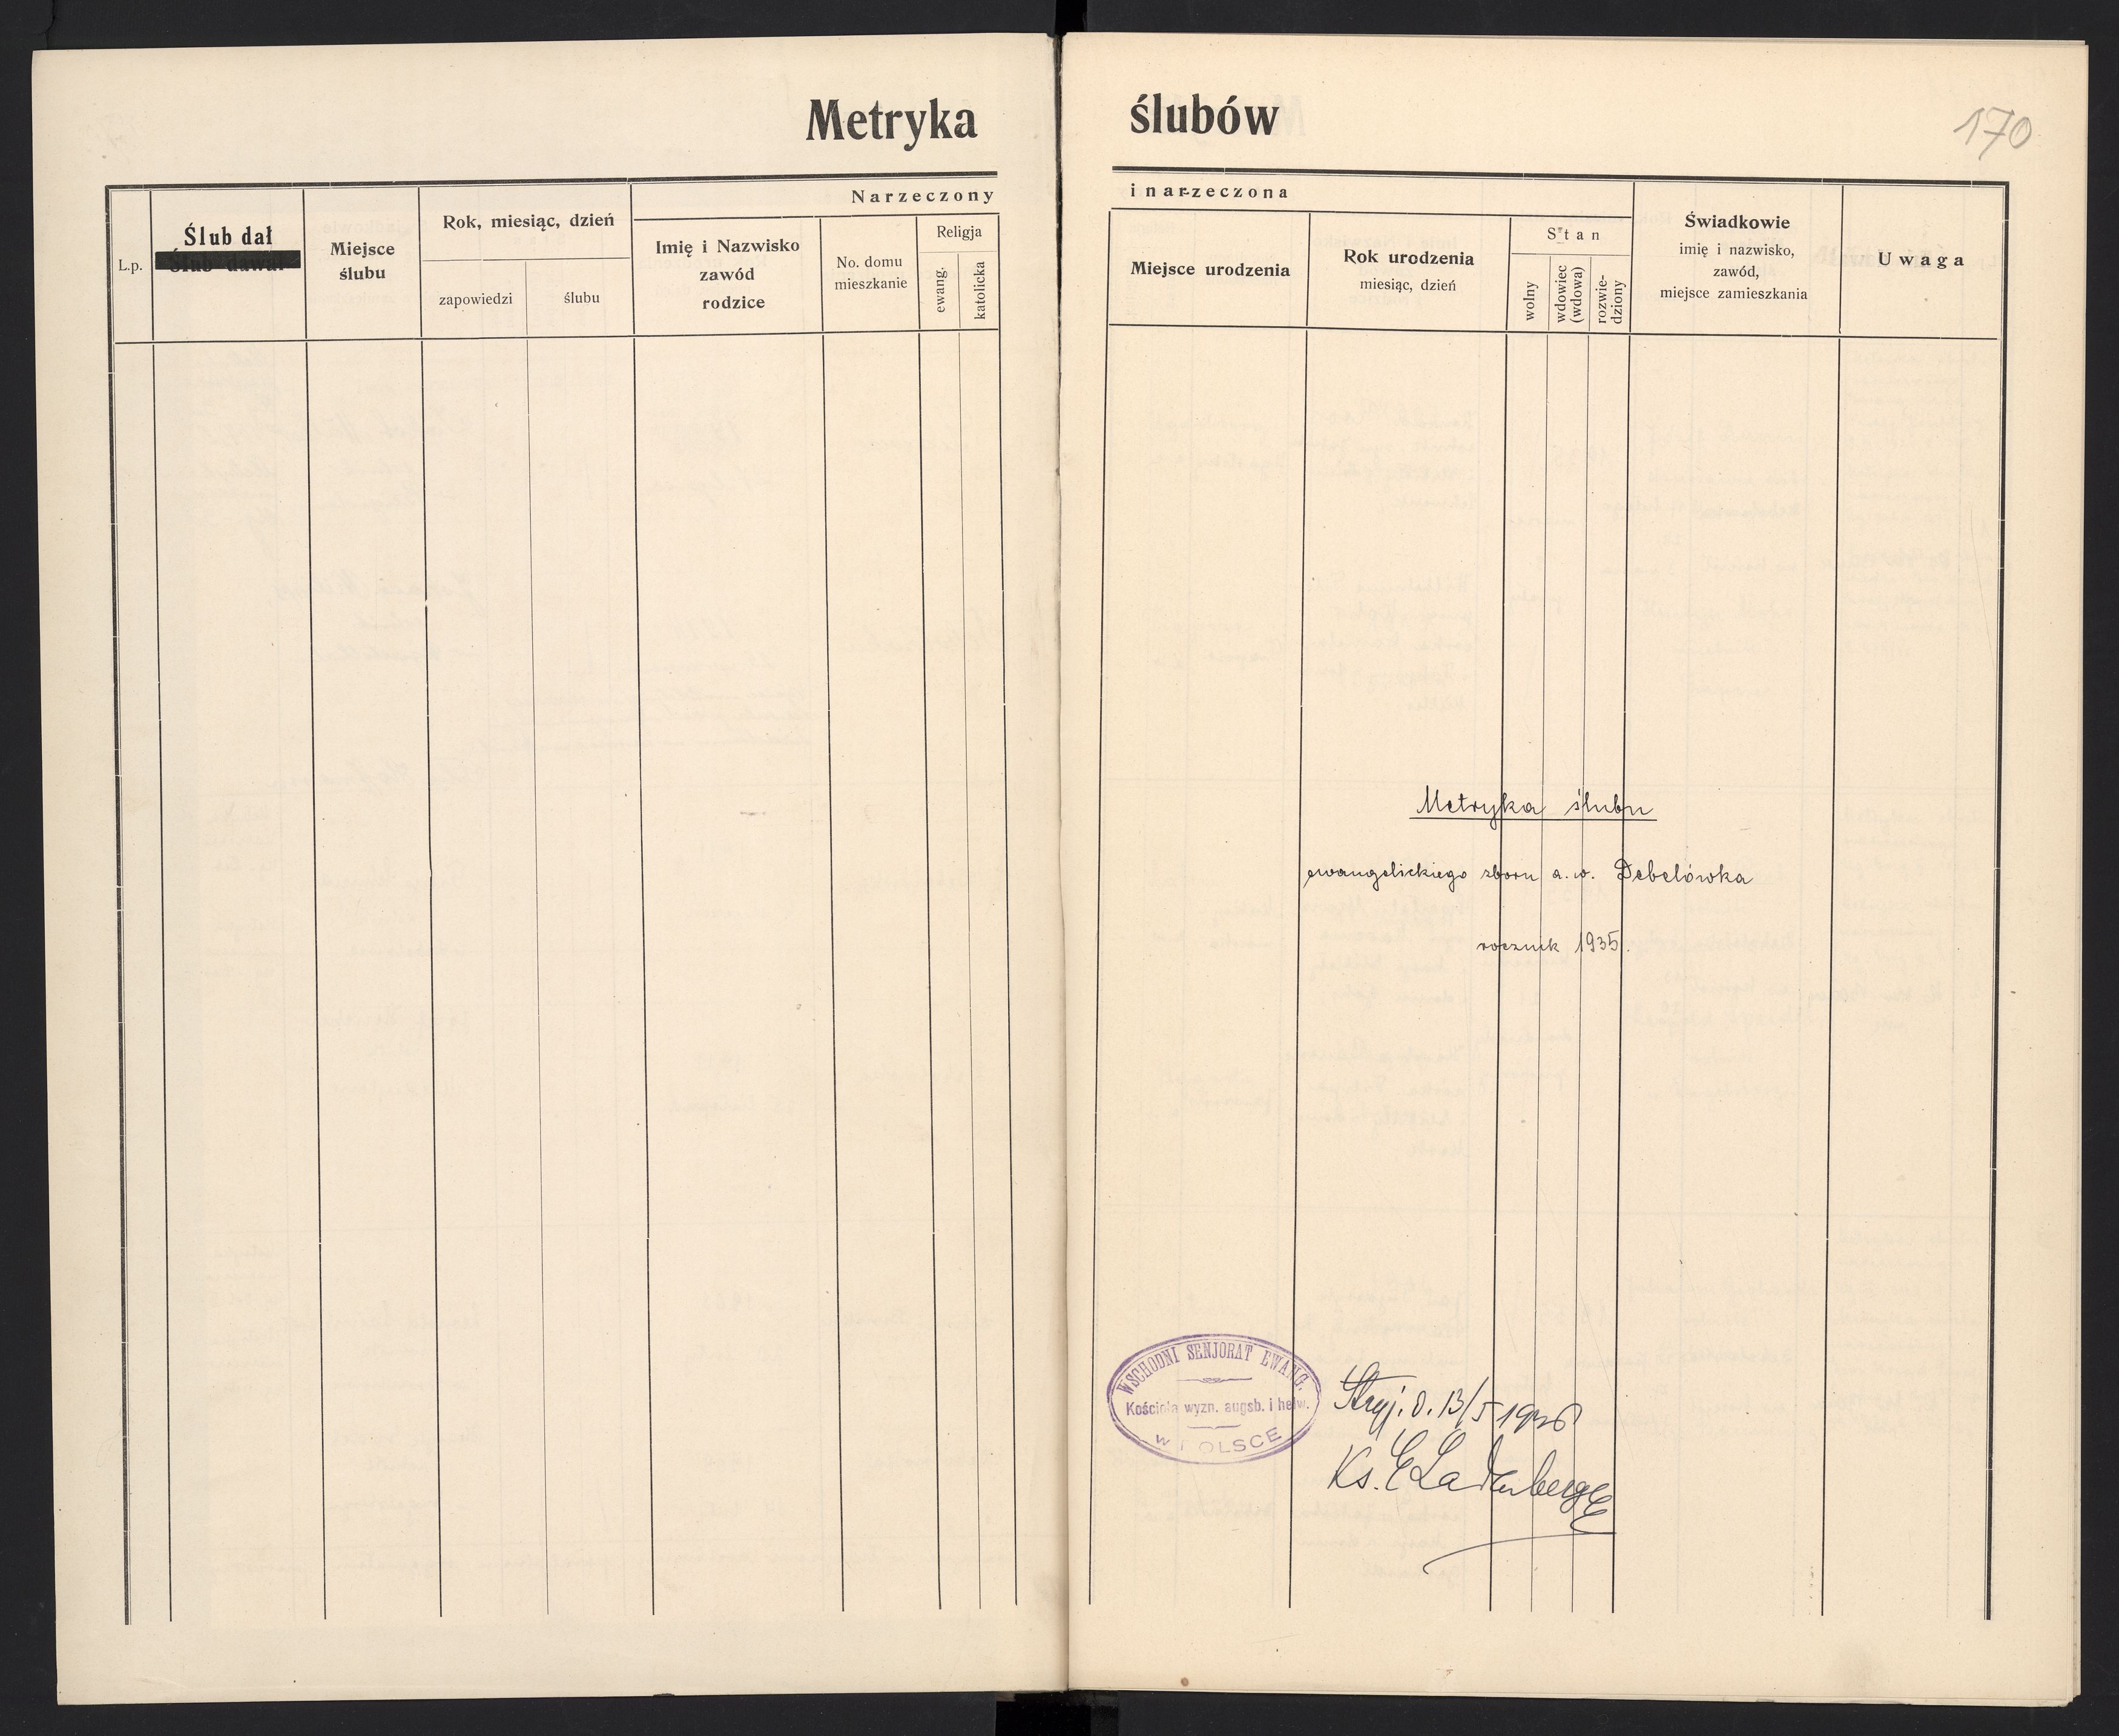 Metryka ślubów
170
Narzeczony i narzeczona
L.p.
Ślub dał
Ślub dawał
Miejsce
ślubu
Rok, miesiąc, dzień
zapowiedzi
ślubu
Imię i Nazwisko
zawód
rodzice
No. domu
mieszkanie
Religja
ewang.
katolicka
Miejsce urodzenia
Rok urodzenia
miesiąc, dzień
Stan
wolny
wdowiec
(wdowa)
rozwie-
dziony
Świadkowie
imię i nazwisko,
zawód,
miejsce zamieszkania
Uwaga
Metryka ślubu
ewangelickiego zboru a.w. Debelówka
rocznik 1935.
WSCHODNI SENJORAT EWANG.
Kościoła wyzn. augsb. i helw.
W POLSCE
Stryj. d. 13/5 1936
Ks. E Ladenberger